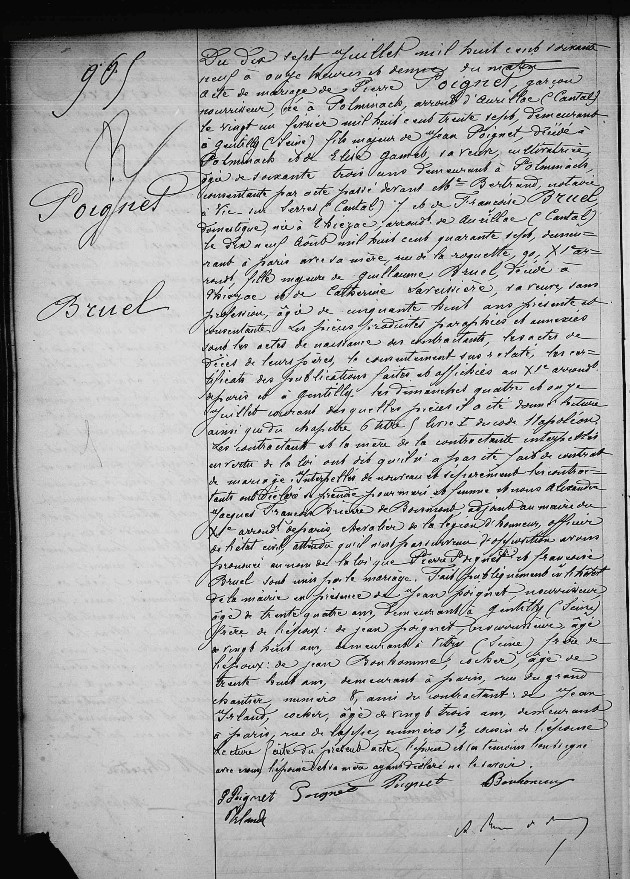 965
Poignet
Bruel
Du dix sept Juillet mil huit cent soixante
neuf à onze heures et demie du matin
Acte de mariage de Pierre Poignet, garçon
nourrisseur, né à Polminack, arrond. d'Aurillac (Cantal)
le vingt un février mil huit cent trente sept, demeurant
à Gentilly (Seine) fils majeur de Jean Poignet décédé à
Polminack et de Elise sa veuve, cultivatrice
âgée de soixante trois ans demeurant à Polminack,
consentante par acte passé devant Me Bertrand, notaire
à Vic sur Serres (Cantal) / et de Françoise Bruel,
domestique, née à Thiezac, arrond. de Aurillac (Cantal)
le dix neuf Août mil huit cent quarante sept, demeu-
rant à paris avec sa mère, rue de la roquette, 90, XIe ar-
rond., fille majeure de Guillaume Bruel, décédé à
Thiezac et de Catherine sa veuve, sans
profession, âgée de cinquante huit ans présente et
consentante. Les pièces produites paraphées et annexées
sont les actes de naissance des contractants, les actes de
décès de leurs pères, le consentement sus relaté, les cer-
tificats des publications faites et affichées au XIe arrond.
de paris et à Gentilly, les dimanches quatre et onze
Juillet courant desquelles pièces il a été donné lecture
ainsi que du chapitre 6 titre 5 livre I du code Napoléon.
Les contractants et la mère de la contractante interpellés
en vertu de la loi ont dit qu'il n'a pas été fait de contrat
de mariage. Interpellés de nouveau et séparément les contrac-
tants ont déclaré se prendre pour mari et femme et nous Alexandre
Jacques François Brierre de Boismont, adjoint au maire du
XIe arrond. de paris chevalier de la légion d'honneur, officier
de l'état civil, attendu qu'il n'est pas survenu d'opposition avons
prononcé au nom de la loi que Pierre Poignet et françoise
Bruel sont unis par le mariage. Fait publiquement à l'hôtel
de la mairie en présence de Jean poignet nourrisseur
âgé de trente quatre ans, demeurant à gentilly (Seine)
frère de l'époux : de jean poignet nourrisseur, âgé
de vingt huit ans, demeurant à Vitry (Seine) frère de
l'époux : de jean Bonhomme, cocher, âgé de
trente huit ans, demeurant à paris, rue du grand
chantier numéro 8, ami du contractant : de Jean
Irlande, cocher, âgé de vingt trois ans, demeurant
à paris, rue de lappe, numéro 13 cousin de l'épouse
Lecture faite du présent acte, l'époux et les témoins l'ont signé
avec nous, l'épouse et sa mère ayant déclaré ne le savoir.
P Poignet Poignet Poignet Bonhomme
Irlande